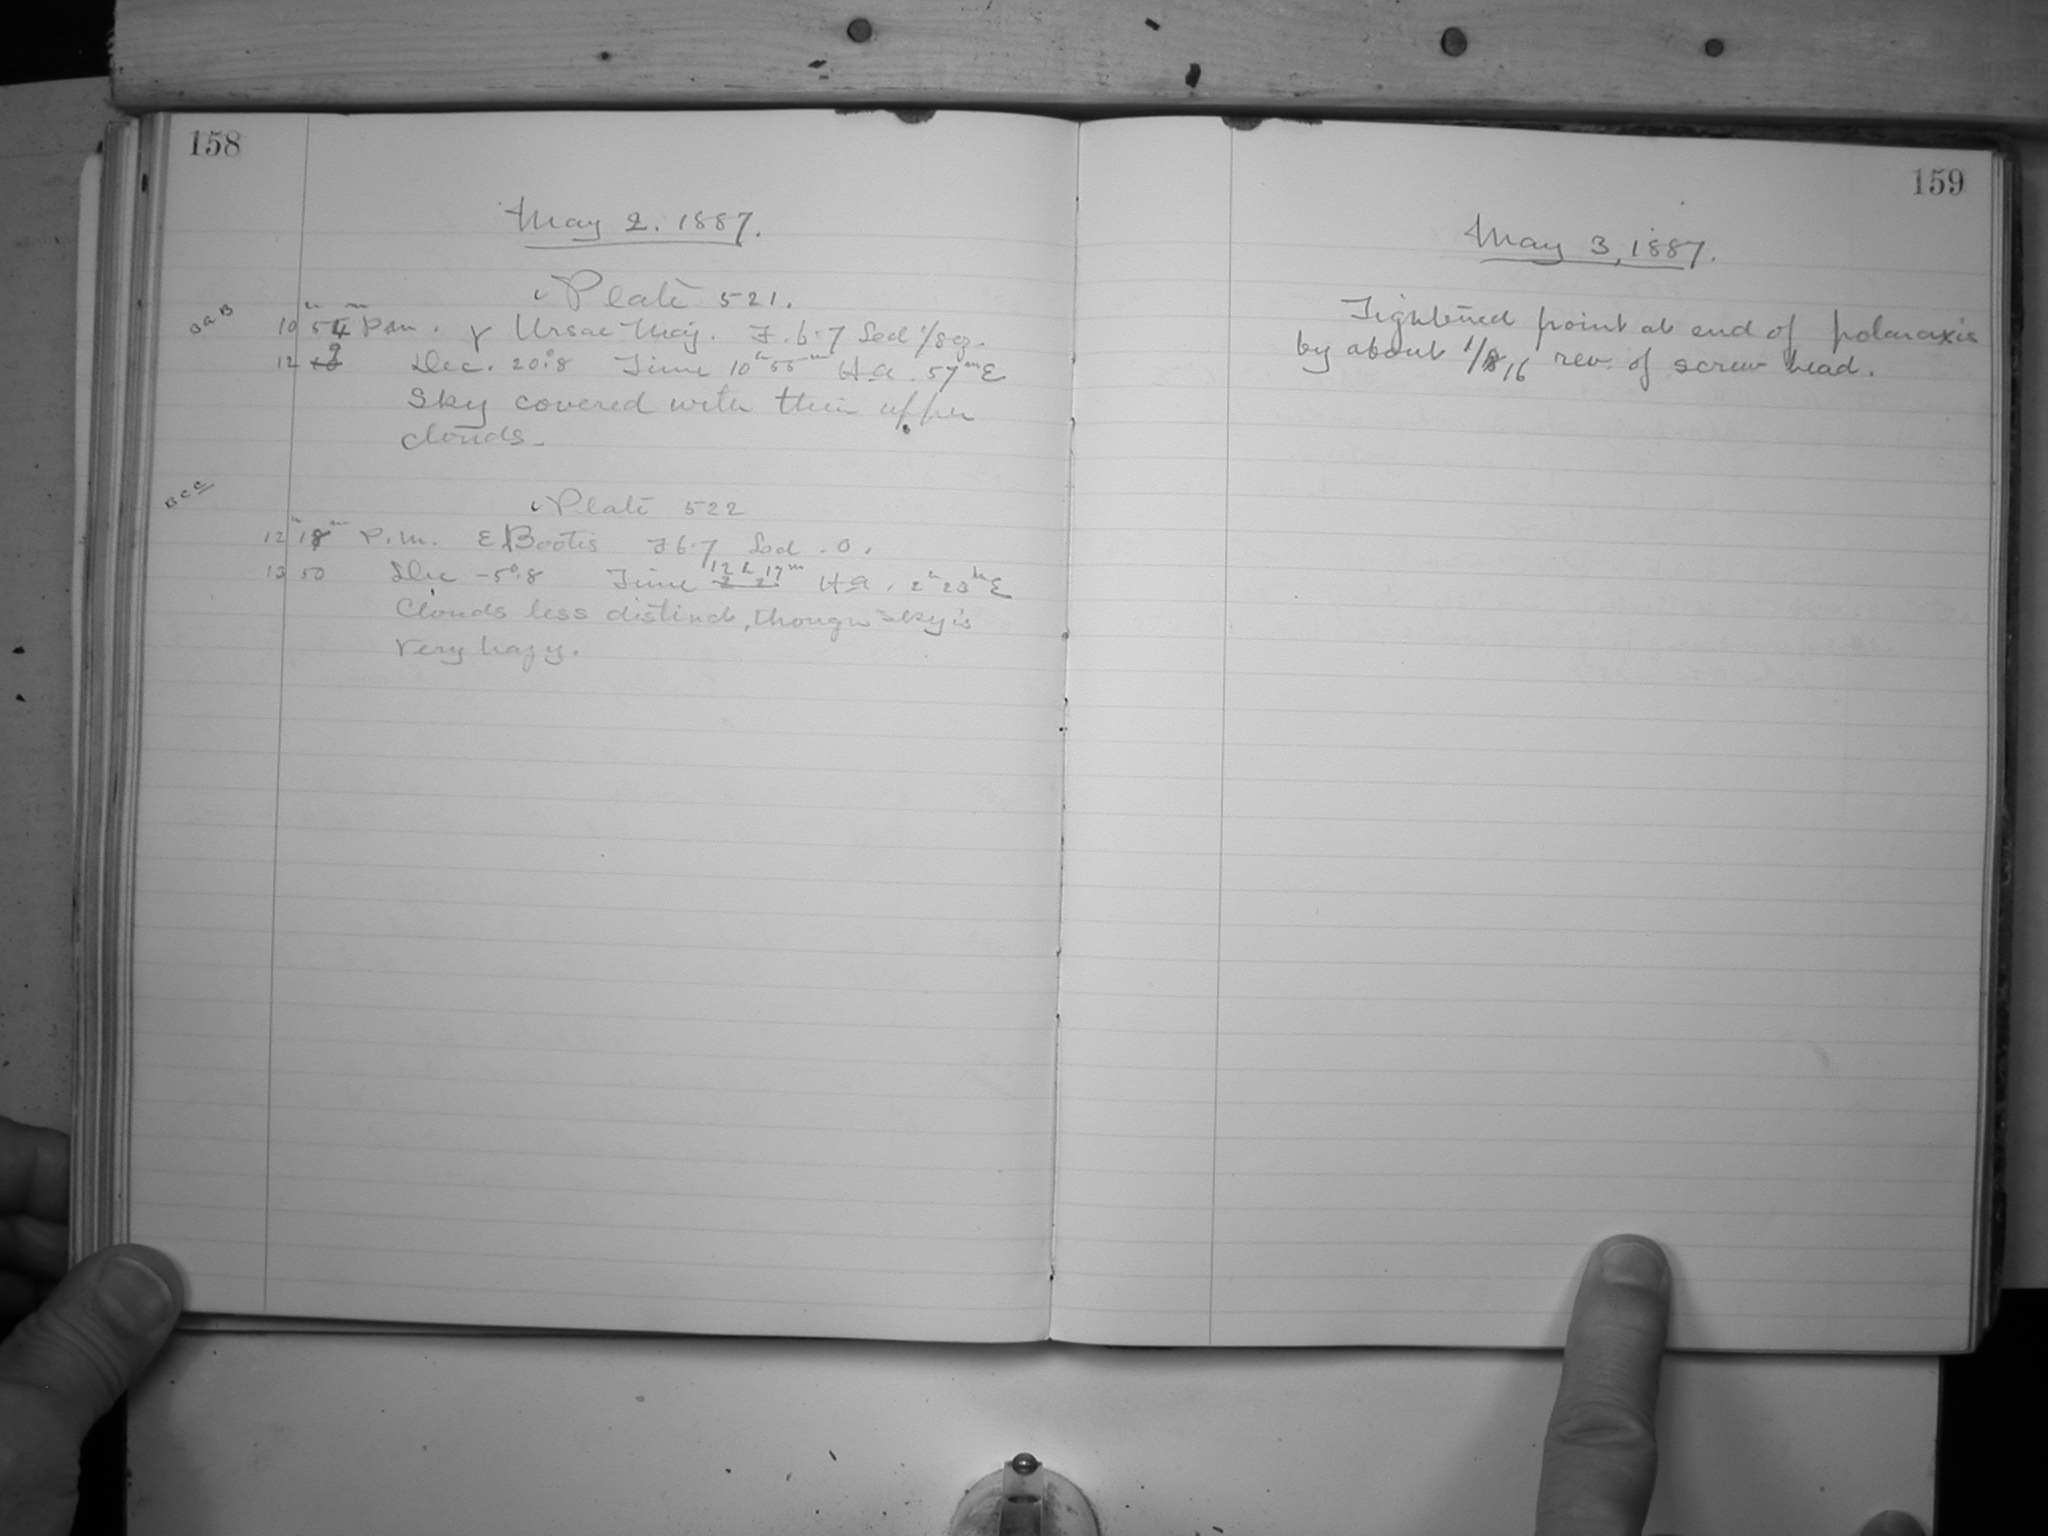 158
May 2. 1887.
Plate 521.
10 54 P.m. γ Ursae Maj. F. 6.7 Sed 1/8 g.
12 9 Dec. 20°.8 Time 10h 55m H a. 57m E
Sky covered with thin upper
clouds.
Plate 522
12h 18m P.m. ε Bootis F 6.7 Sed . 0.
13 50 Dec -5°.8 Time 12h 17m H a. 2h 23m E
Clouds less distinct, though sky is
very hazy.
159
May 3, 1887.
Tightened point at end of polar axis
by about 1/16 rev. of screw head.